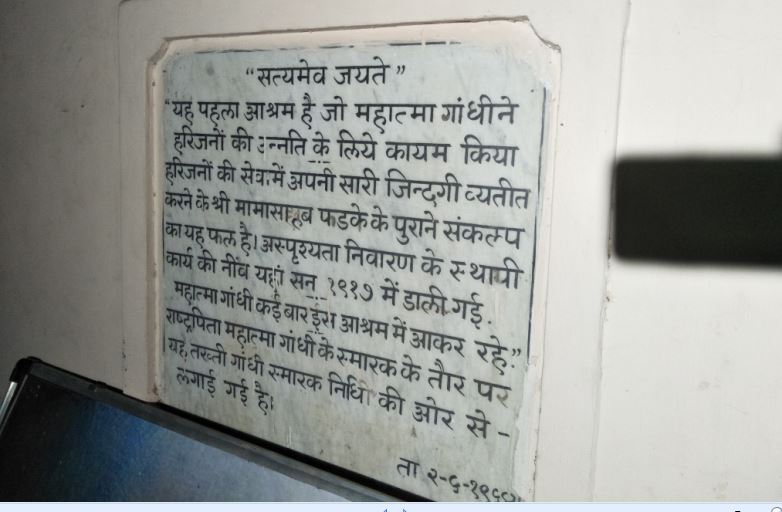 “सत्यमेव जयते”
“यह पहला आश्रम है जो महात्मा गांधीने
हरिजनों की उन्नति के लिये कायम किया
हरिजनों की सेवामें अपनी सारी जिन्दगी व्यतीत
करने के श्री मामासाहब फडके के पुराने संकल्प
का यह फल है। अस्पृश्यता निवारण के स्थायी
कार्य की नींव यहां सन् १९१७ में डाली गई.
महात्मा गांधी कई बार ईस आश्रम में आकर रहे.”
राष्ट्रपिता महात्मा गांधी के स्मारक के तौर पर
यह तख्ती गांधी स्मारक निधि की ओर से -
लगाई गई है।
ता